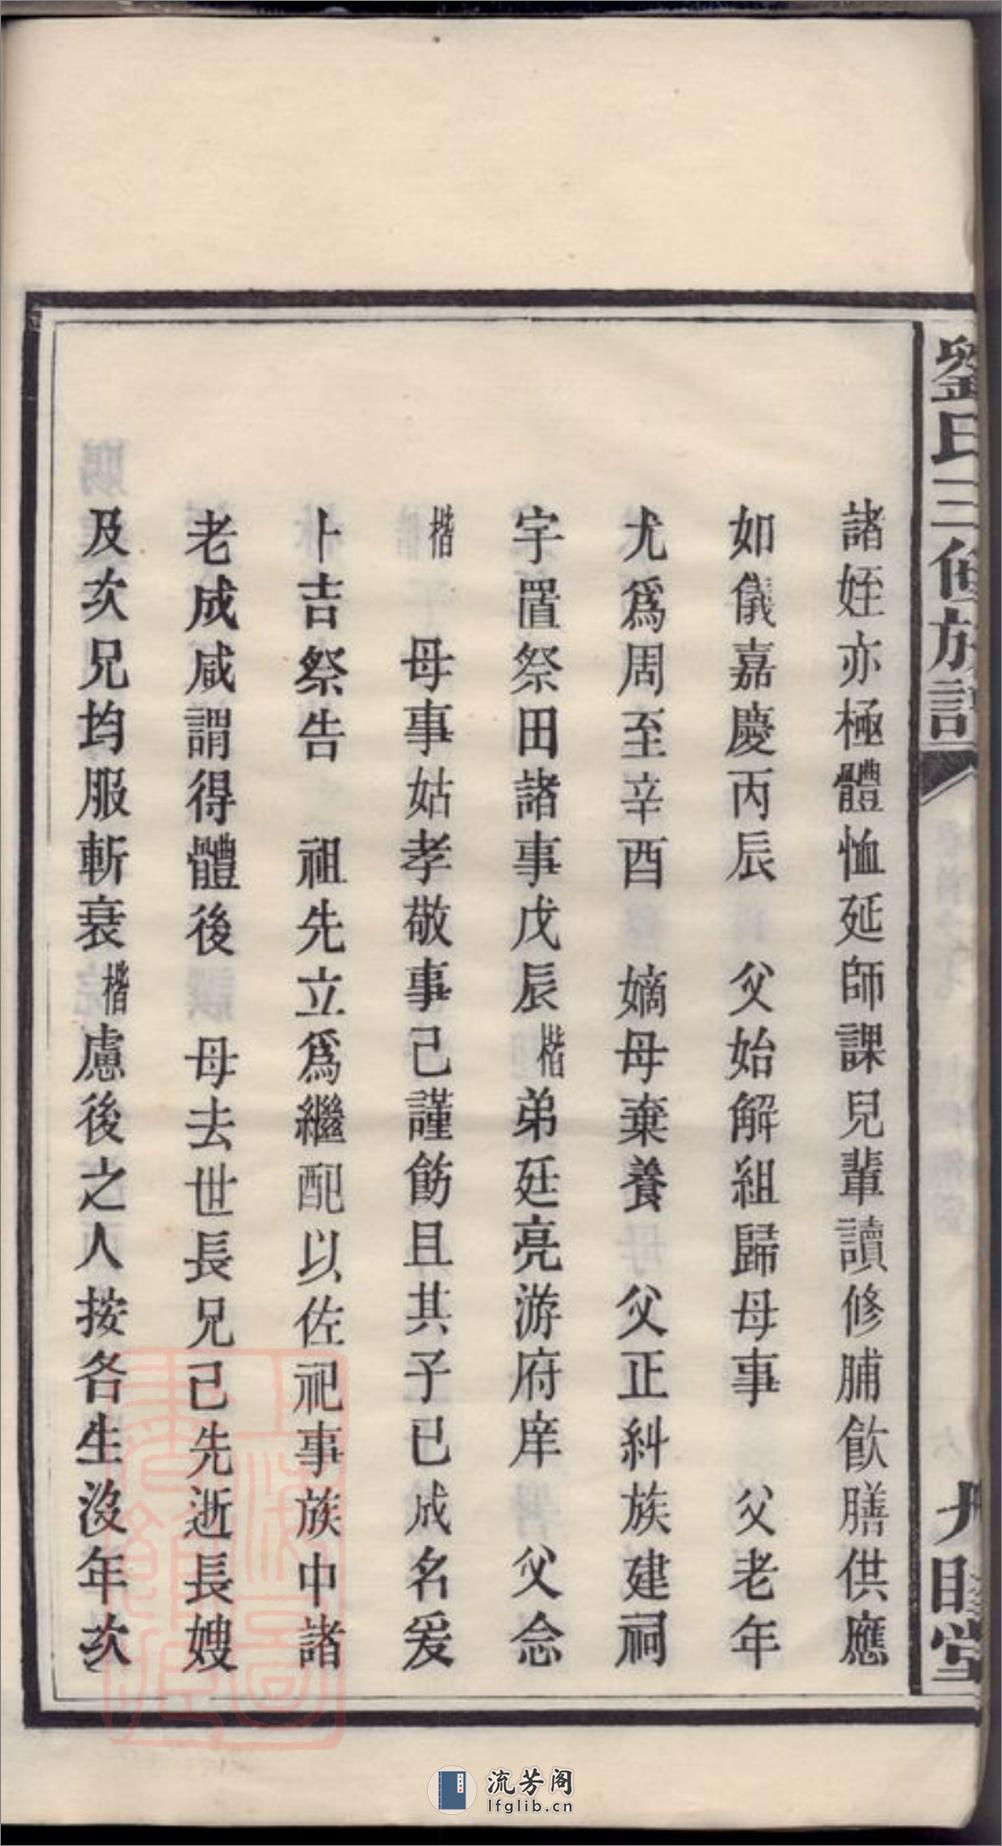 劉氏三修族譜
九睦堂
諸姪亦極體恤延師課兒輩讀修脯飲膳供應
如儀嘉慶丙辰　父始解組歸母事　父老年
尤爲周至辛酉　嫡母棄養　父正糾族建祠
宇置祭田諸事戊辰楷弟廷亮游府庠　父念
楷　母事姑孝敬事己謹飭且其子已成名爰
卜吉祭告　祖先立爲繼配以佐祀事族中諸
老成咸謂得體後　母去世長兄已先逝長嫂
及次兄均服斬衰楷慮後之人按各生沒年次
流芳阁
lfglib.cn